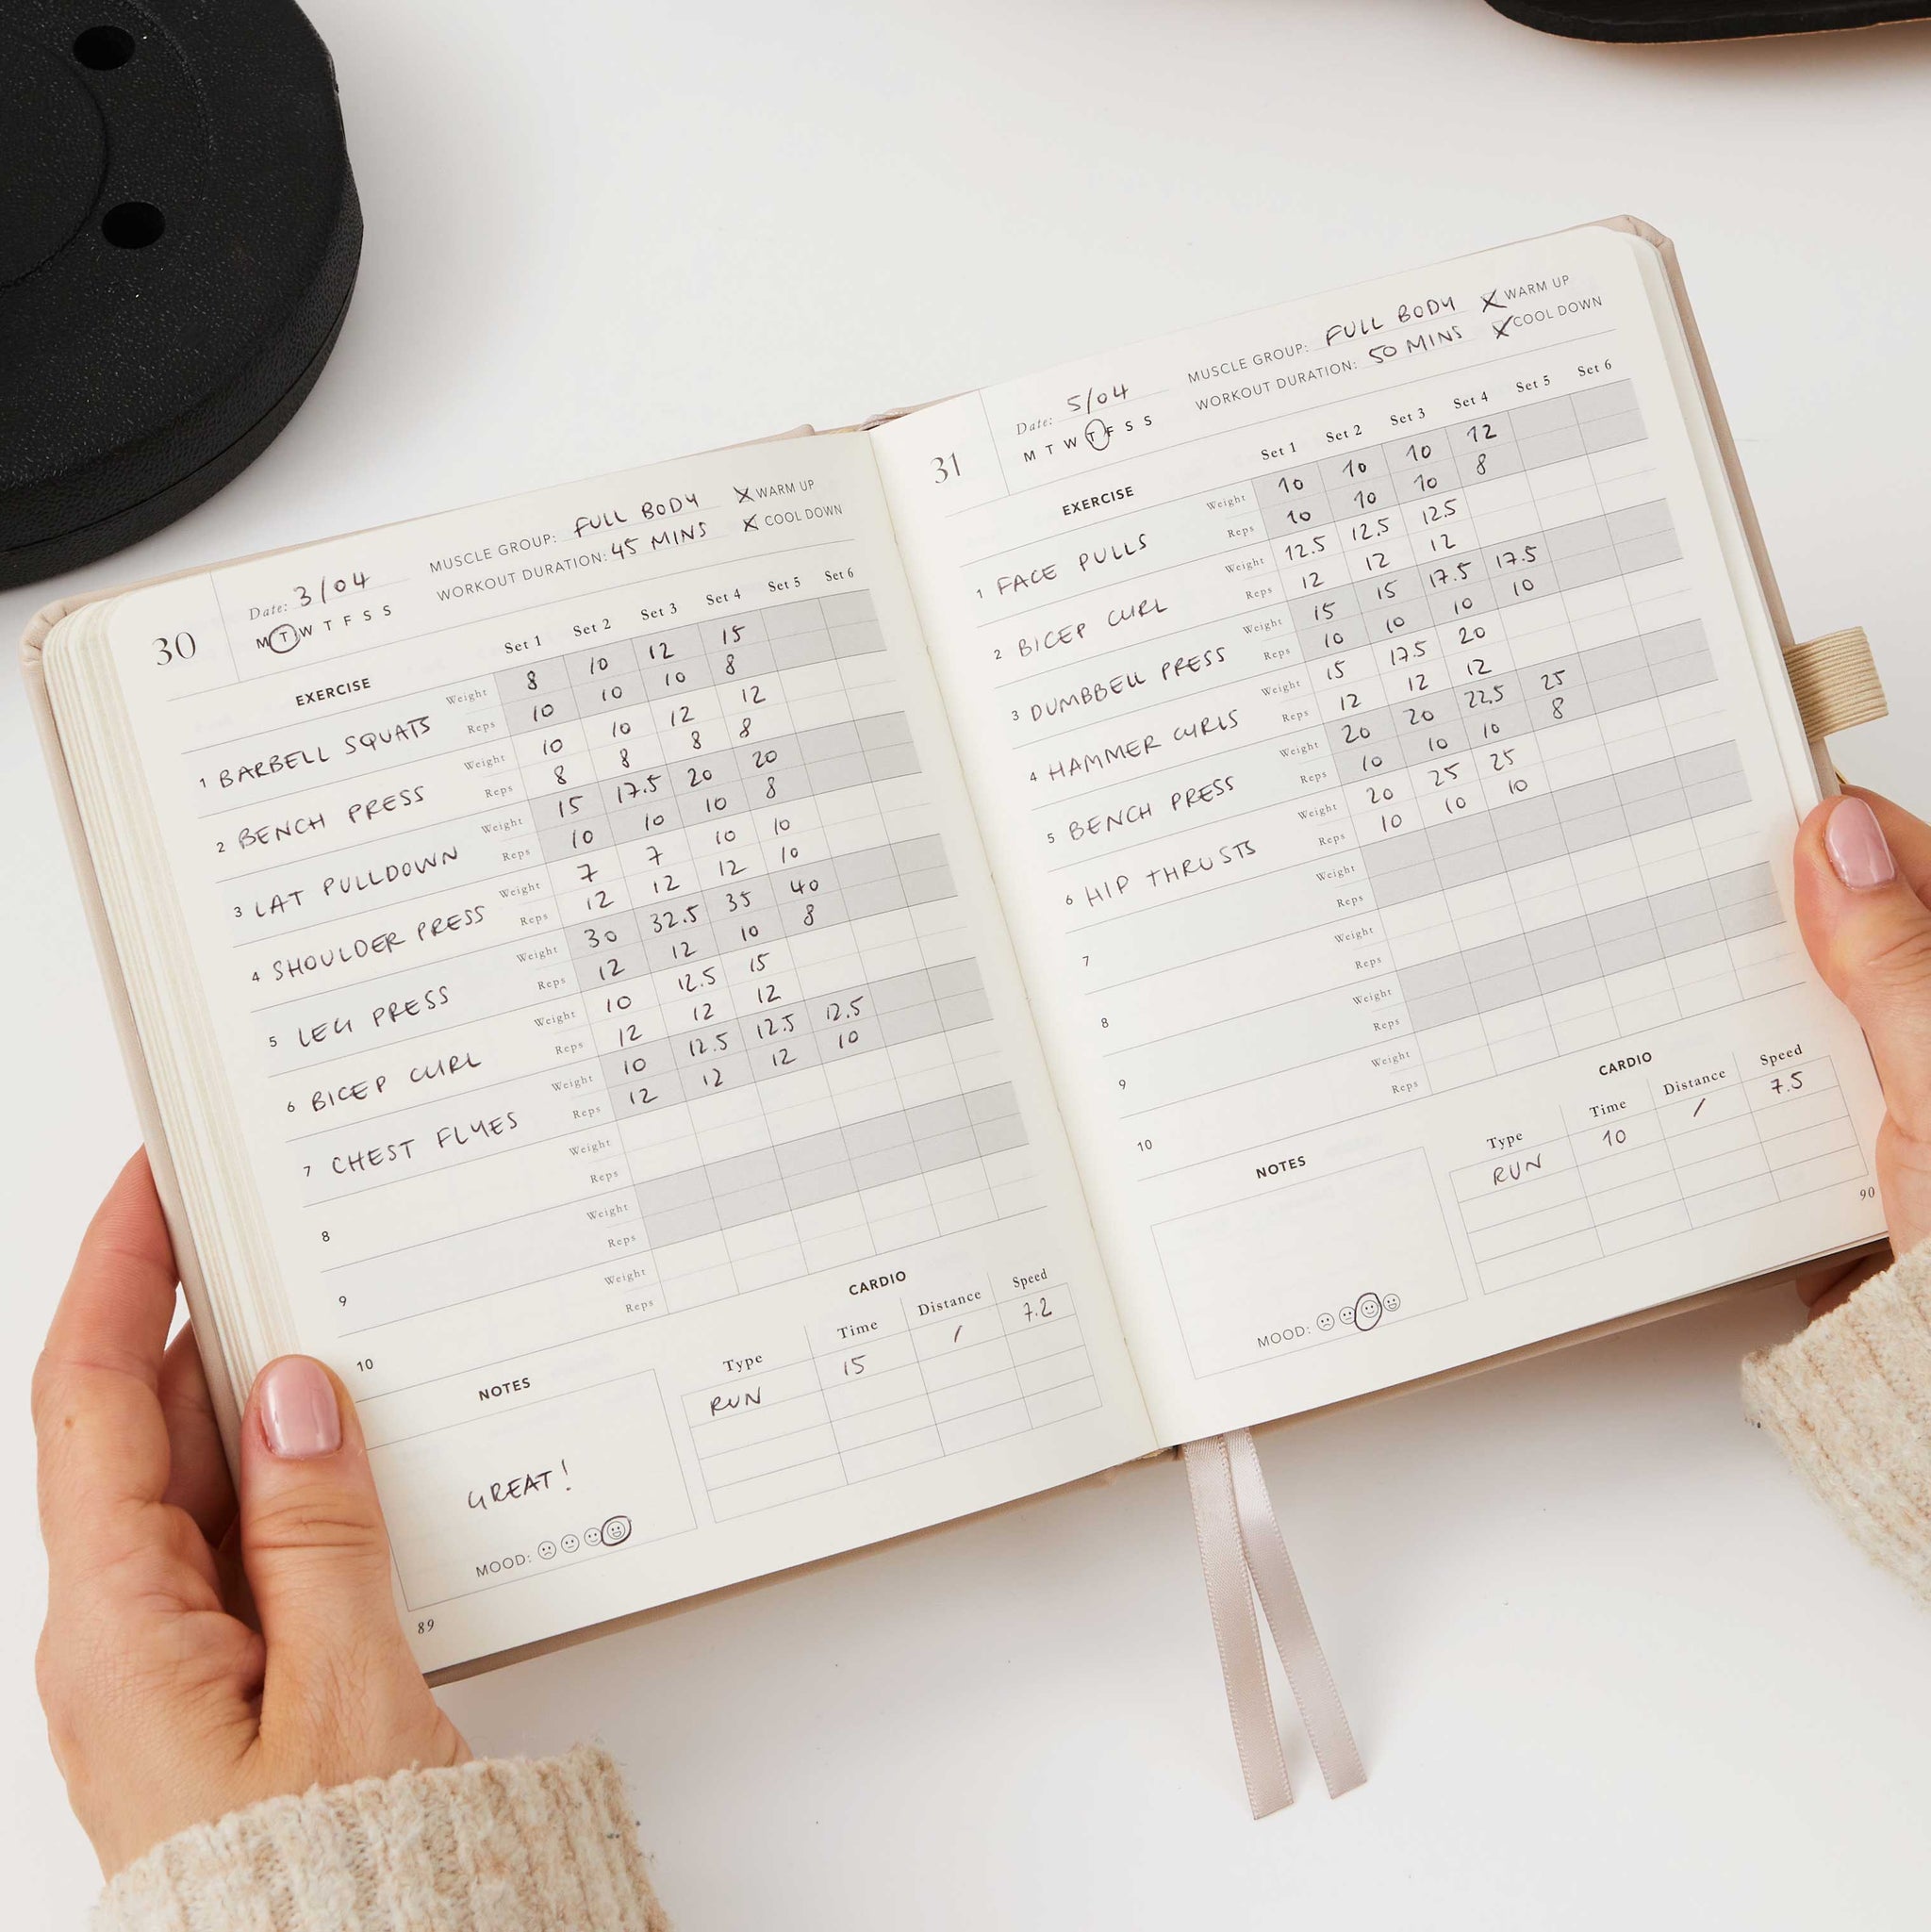 30
Date: 3/04
M T W T F S S
MUSCLE GROUP: FULL BODY
WORKOUT DURATION: 45 MINS
X WARM UP
X COOL DOWN
EXERCISE Set 1 Set 2 Set 3 Set 4 Set 5 Set 6
1 BARBELL SQUATS Weight 8 10 12 15
Reps 10 10 10 8
2 BENCH PRESS Weight 10 10 12 12
Reps 8 8 8 8
3 LAT PULLDOWN Weight 15 17.5 20 20
Reps 10 10 10 8
4 SHOULDER PRESS Weight 7 7 10 10
Reps 12 12 12 10
5 LEG PRESS Weight 30 32.5 35 40
Reps 12 12 10 8
6 BICEP CURL Weight 10 12.5 15
Reps 12 12 12
7 CHEST FLYES Weight 10 12.5 12.5 12.5
Reps 12 12 12 10
8 Weight
Reps
9 Weight
Reps
10 Weight
Reps
NOTES
GREAT!
MOOD:
CARDIO
Type Time Distance Speed
RUN 15 / 7.2
89
31
Date: 5/04
M T W T F S S
MUSCLE GROUP: FULL BODY
WORKOUT DURATION: 50 MINS
X WARM UP
X COOL DOWN
EXERCISE Set 1 Set 2 Set 3 Set 4 Set 5 Set 6
1 FACE PULLS Weight 10 10 10 12
Reps 10 10 10 8
2 BICEP CURL Weight 12.5 12.5 12.5
Reps 12 12 12
3 DUMBBELL PRESS Weight 15 15 17.5 17.5
Reps 10 10 10 10
4 HAMMER CURLS Weight 15 17.5 20
Reps 12 12 12
5 BENCH PRESS Weight 20 20 22.5 25
Reps 10 10 10 8
6 HIP THRUSTS Weight 20 25 25
Reps 10 10 10
7 Weight
Reps
8 Weight
Reps
9 Weight
Reps
10 Weight
Reps
NOTES
MOOD:
CARDIO
Type Time Distance Speed
RUN 10 / 7.5
90